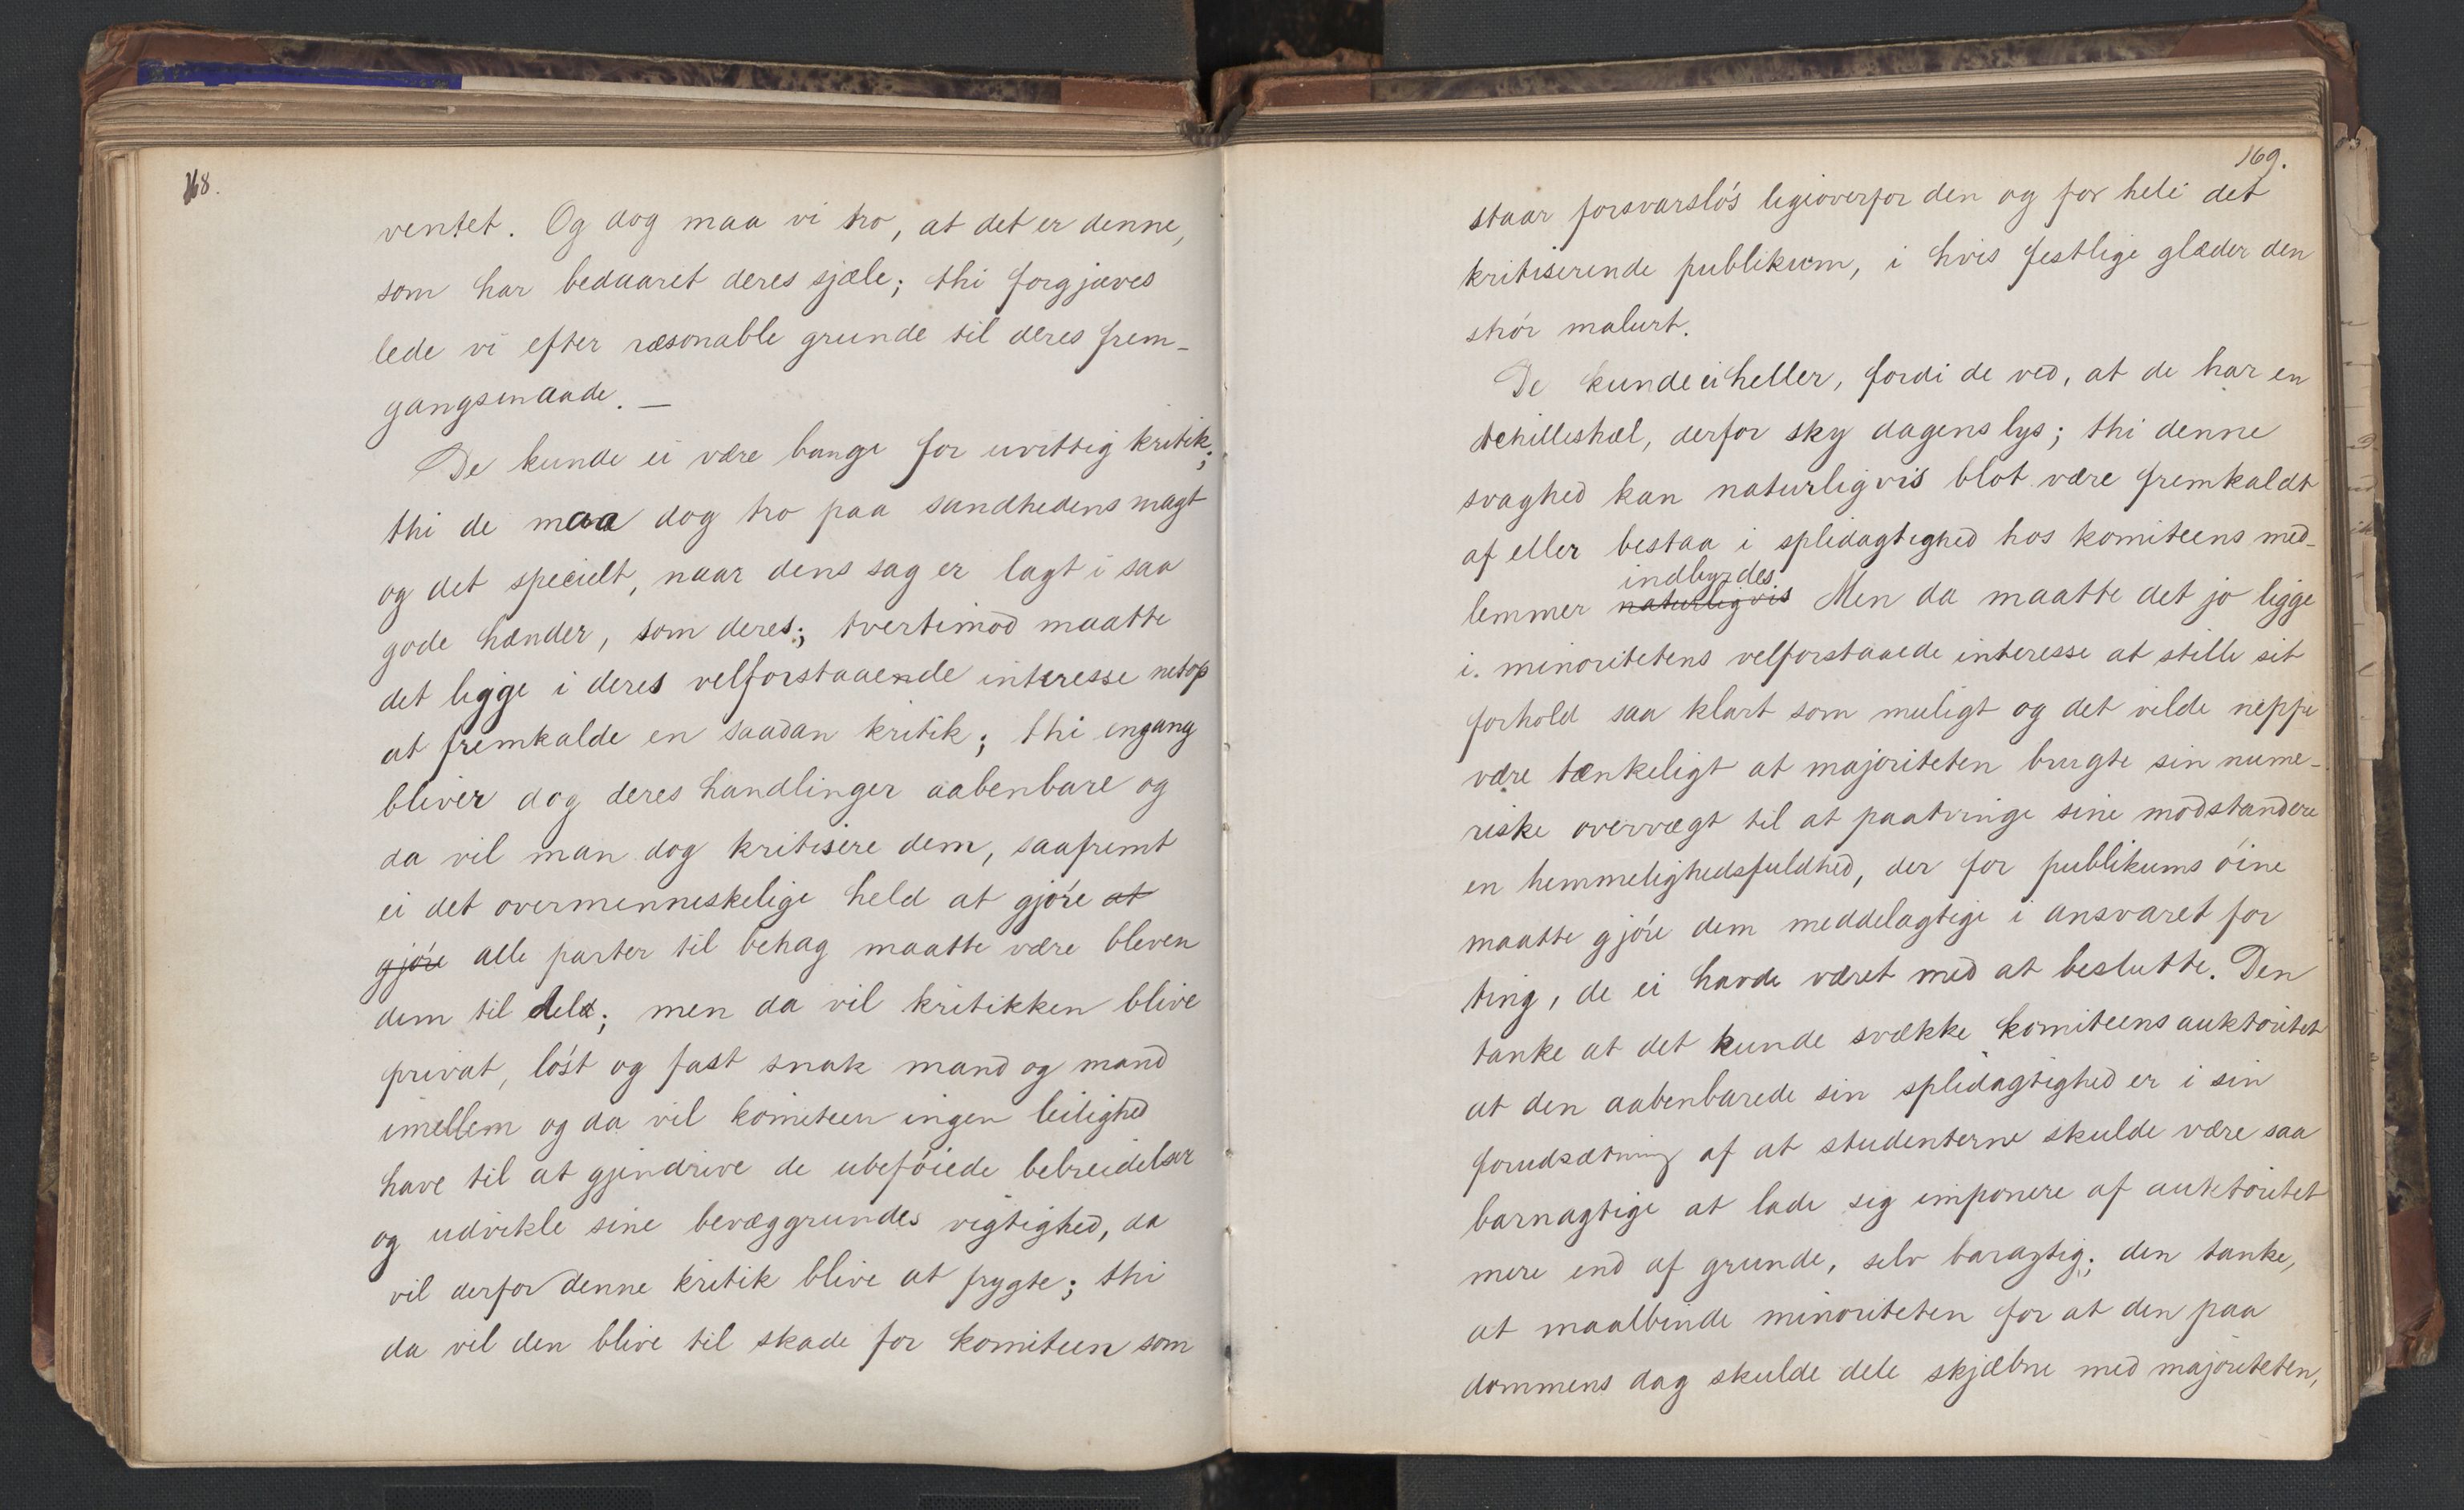 168.
ventet. Og dog maa vi tro, at det er denne,
som har bedaaret deres sjæle; thi forgjæves
lede vi efter ræsonable grunde til deres frem-
gangsmaade. —
De kunde ei være bange for uvittig kritik;
thi de maa dog tro paa sandhedens magt
og det specielt, naar dens sag er lagt i saa
gode hænder, som deres; tvertimod maatte
det ligge i deres velforstaaende interesse netop
at fremkalde en saadan kritik; thi engang
bliver dog deres handlinger aabenbare og
da vil man dog kritisere dem, saafremt
ei det overmenneskelige held at gjøre at
gjøre alle parter til behag maatte være bleven
dem til del; men da vil kritikken blive
privat, løst og fast snak mand og mand
imellem og da vil komiteen ingen leilighed
have til at gjendrive de ubeføiede bebreidelser
og udvikle sine bevæggrundes vigtighed, da
vil derfor denne kritik blive at frygte; thi
da vil den blive til skade for komiteen som
169.
staar forsvarsløs ligeoverfor den og for hele det
kritiserende publikum, i hvis festlige glæder den
strør malurt.
De kunde ei heller, fordi de ved, at de har en
Achilleshæl, derfor sky dagens lys; thi denne
svaghed kan naturligvis blot være fremkaldt
af eller bestaa i splidagtighed hos komiteens med-
indbyrdes
lemmer naturligvis Men da maatte det jo ligge
i minoritetens velforstaaede interesse at stille sit
forhold saa klart som muligt og det vilde neppe
være tænkeligt at majoriteten brugte sin nume-
riske overvægt til at paatvinge sine modstandere
en hemmelighedsfuldhed, der for publikums øine
maatte gjøre dem meddelagtige i ansvaret for
ting, de ei havde været med at beslutte. Den
tanke at det kunde svække komiteens auktoritet
at den aabenbarede sin splidagtighed er i sin
forudsætning af at studenterne skulde være saa
barnagtige at lade sig imponere af auktoritet
mere end af grunde, selv baragtig; den tanke,
at maalbinde minoriteten for at den paa
dommens dag skulde dele skjæbne med majoriteten,